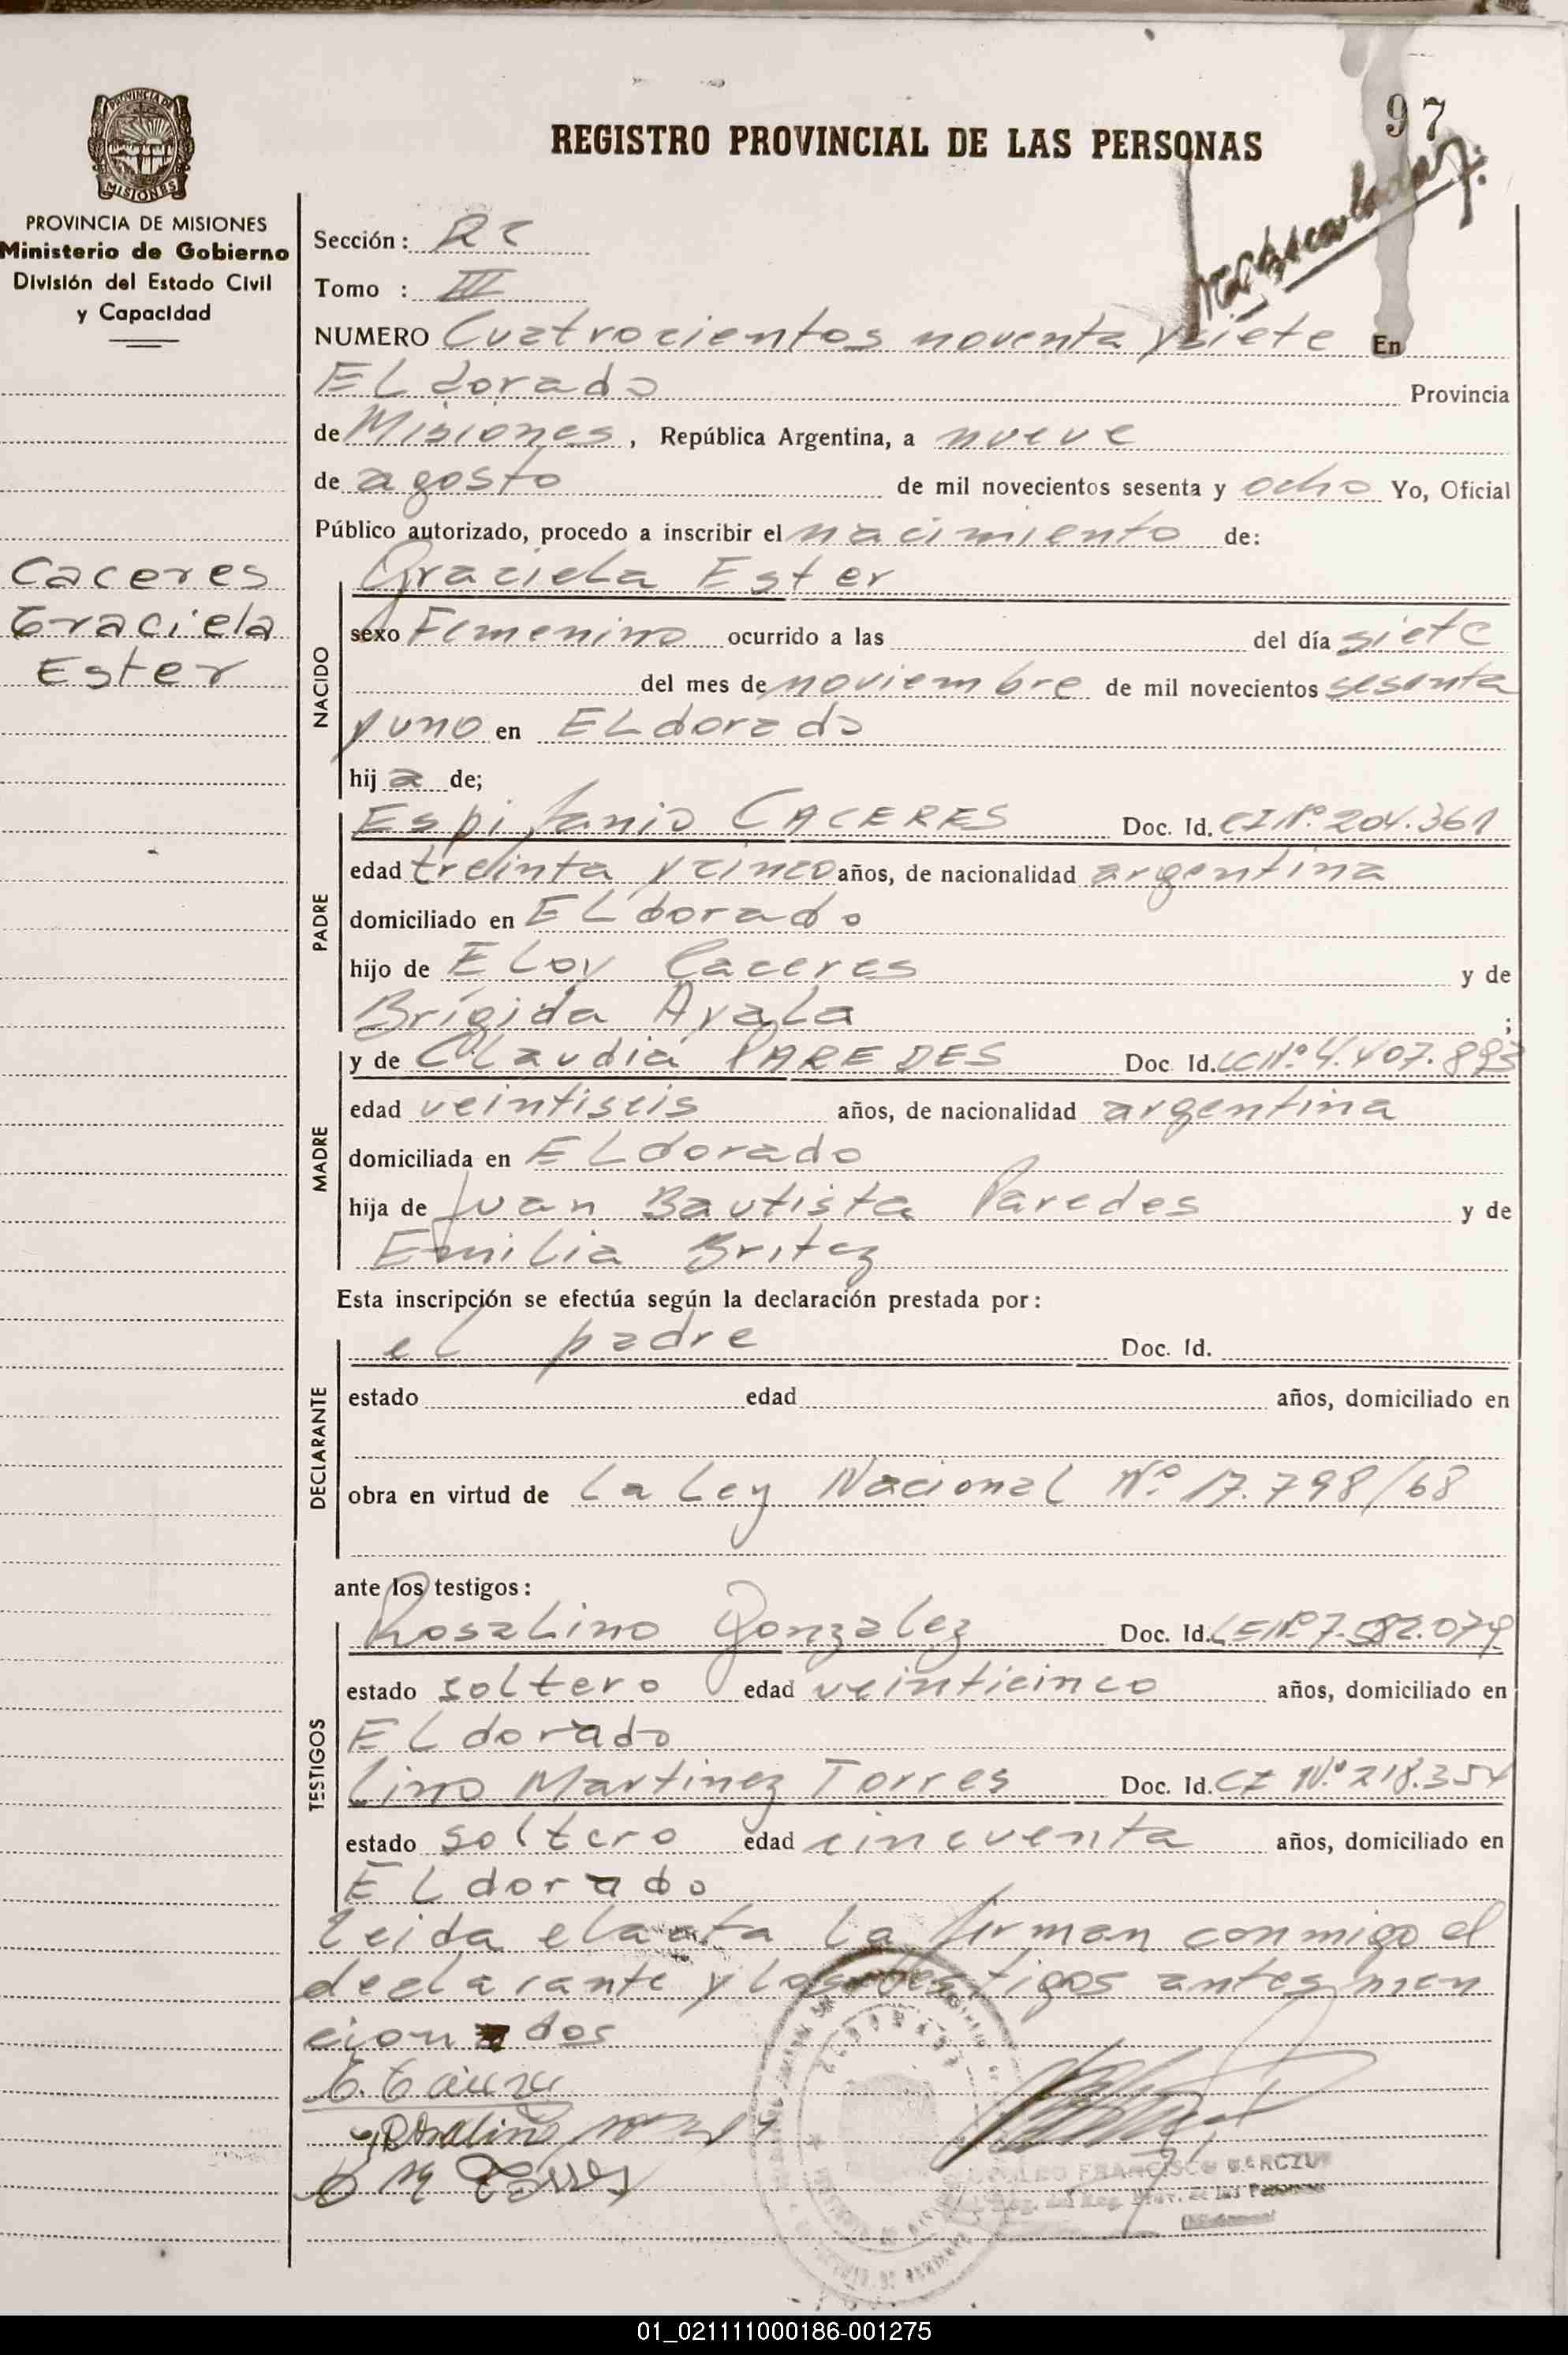 97
PROVINCIA DE
MISIONES
REGISTRO PROVINCIAL DE LAS PERSONAS
PROVINCIA DE MISIONES
Ministerio de Gobierno
División del Estado Civil
y Capacidad
Caceres
Graciela
Ester
Sección:
Tomo : III
NUMERO Cuatrocientos noventa y siete En
ELdorado Provincia
de Misiones, República Argentina, a nueve
de agosto de mil novecientos sesenta y ocho Yo, Oficial
Público autorizado, procedo a inscribir el nacimiento de:
NACIDO
Graciela Ester
sexo Femenino ocurrido a las del día siete
del mes de noviembre de mil novecientos sesenta
y uno en ELdorado
hij a de;
PADRE
Espifanio CACERES Doc. Id. CI Nº 204.361
edad treinta y cinco años, de nacionalidad argentina
domiciliado en ELdorado
hijo de ELoy Caceres y de
Brígida Ayala ;
MADRE
y de CLaudia PAREDES Doc. Id. LC Nº 4.407.893
edad veintiseis años, de nacionalidad argentina
domiciliada en ELdorado
hija de Juan Bautista Paredes y de
Emilia Britez
Esta inscripción se efectúa según la declaración prestada por:
DECLARANTE
el padre Doc. Id.
estado edad años, domiciliado en
obra en virtud de la Ley Nacional Nº 17.798/68
ante los testigos:
TESTIGOS
RosaLino Gonzalez Doc. Id. LE Nº 7.582.079
estado soltero edad veinticinco años, domiciliado en
ELdorado
Lino Martinez Torres Doc. Id. CI Nº 218.354
estado soltero edad cincuenta años, domiciliado en
ELdorado
Leida el acta la firman conmigo el
declarante y los testigos antes men
cionados
FRANCISCO
01_021111000186-001275